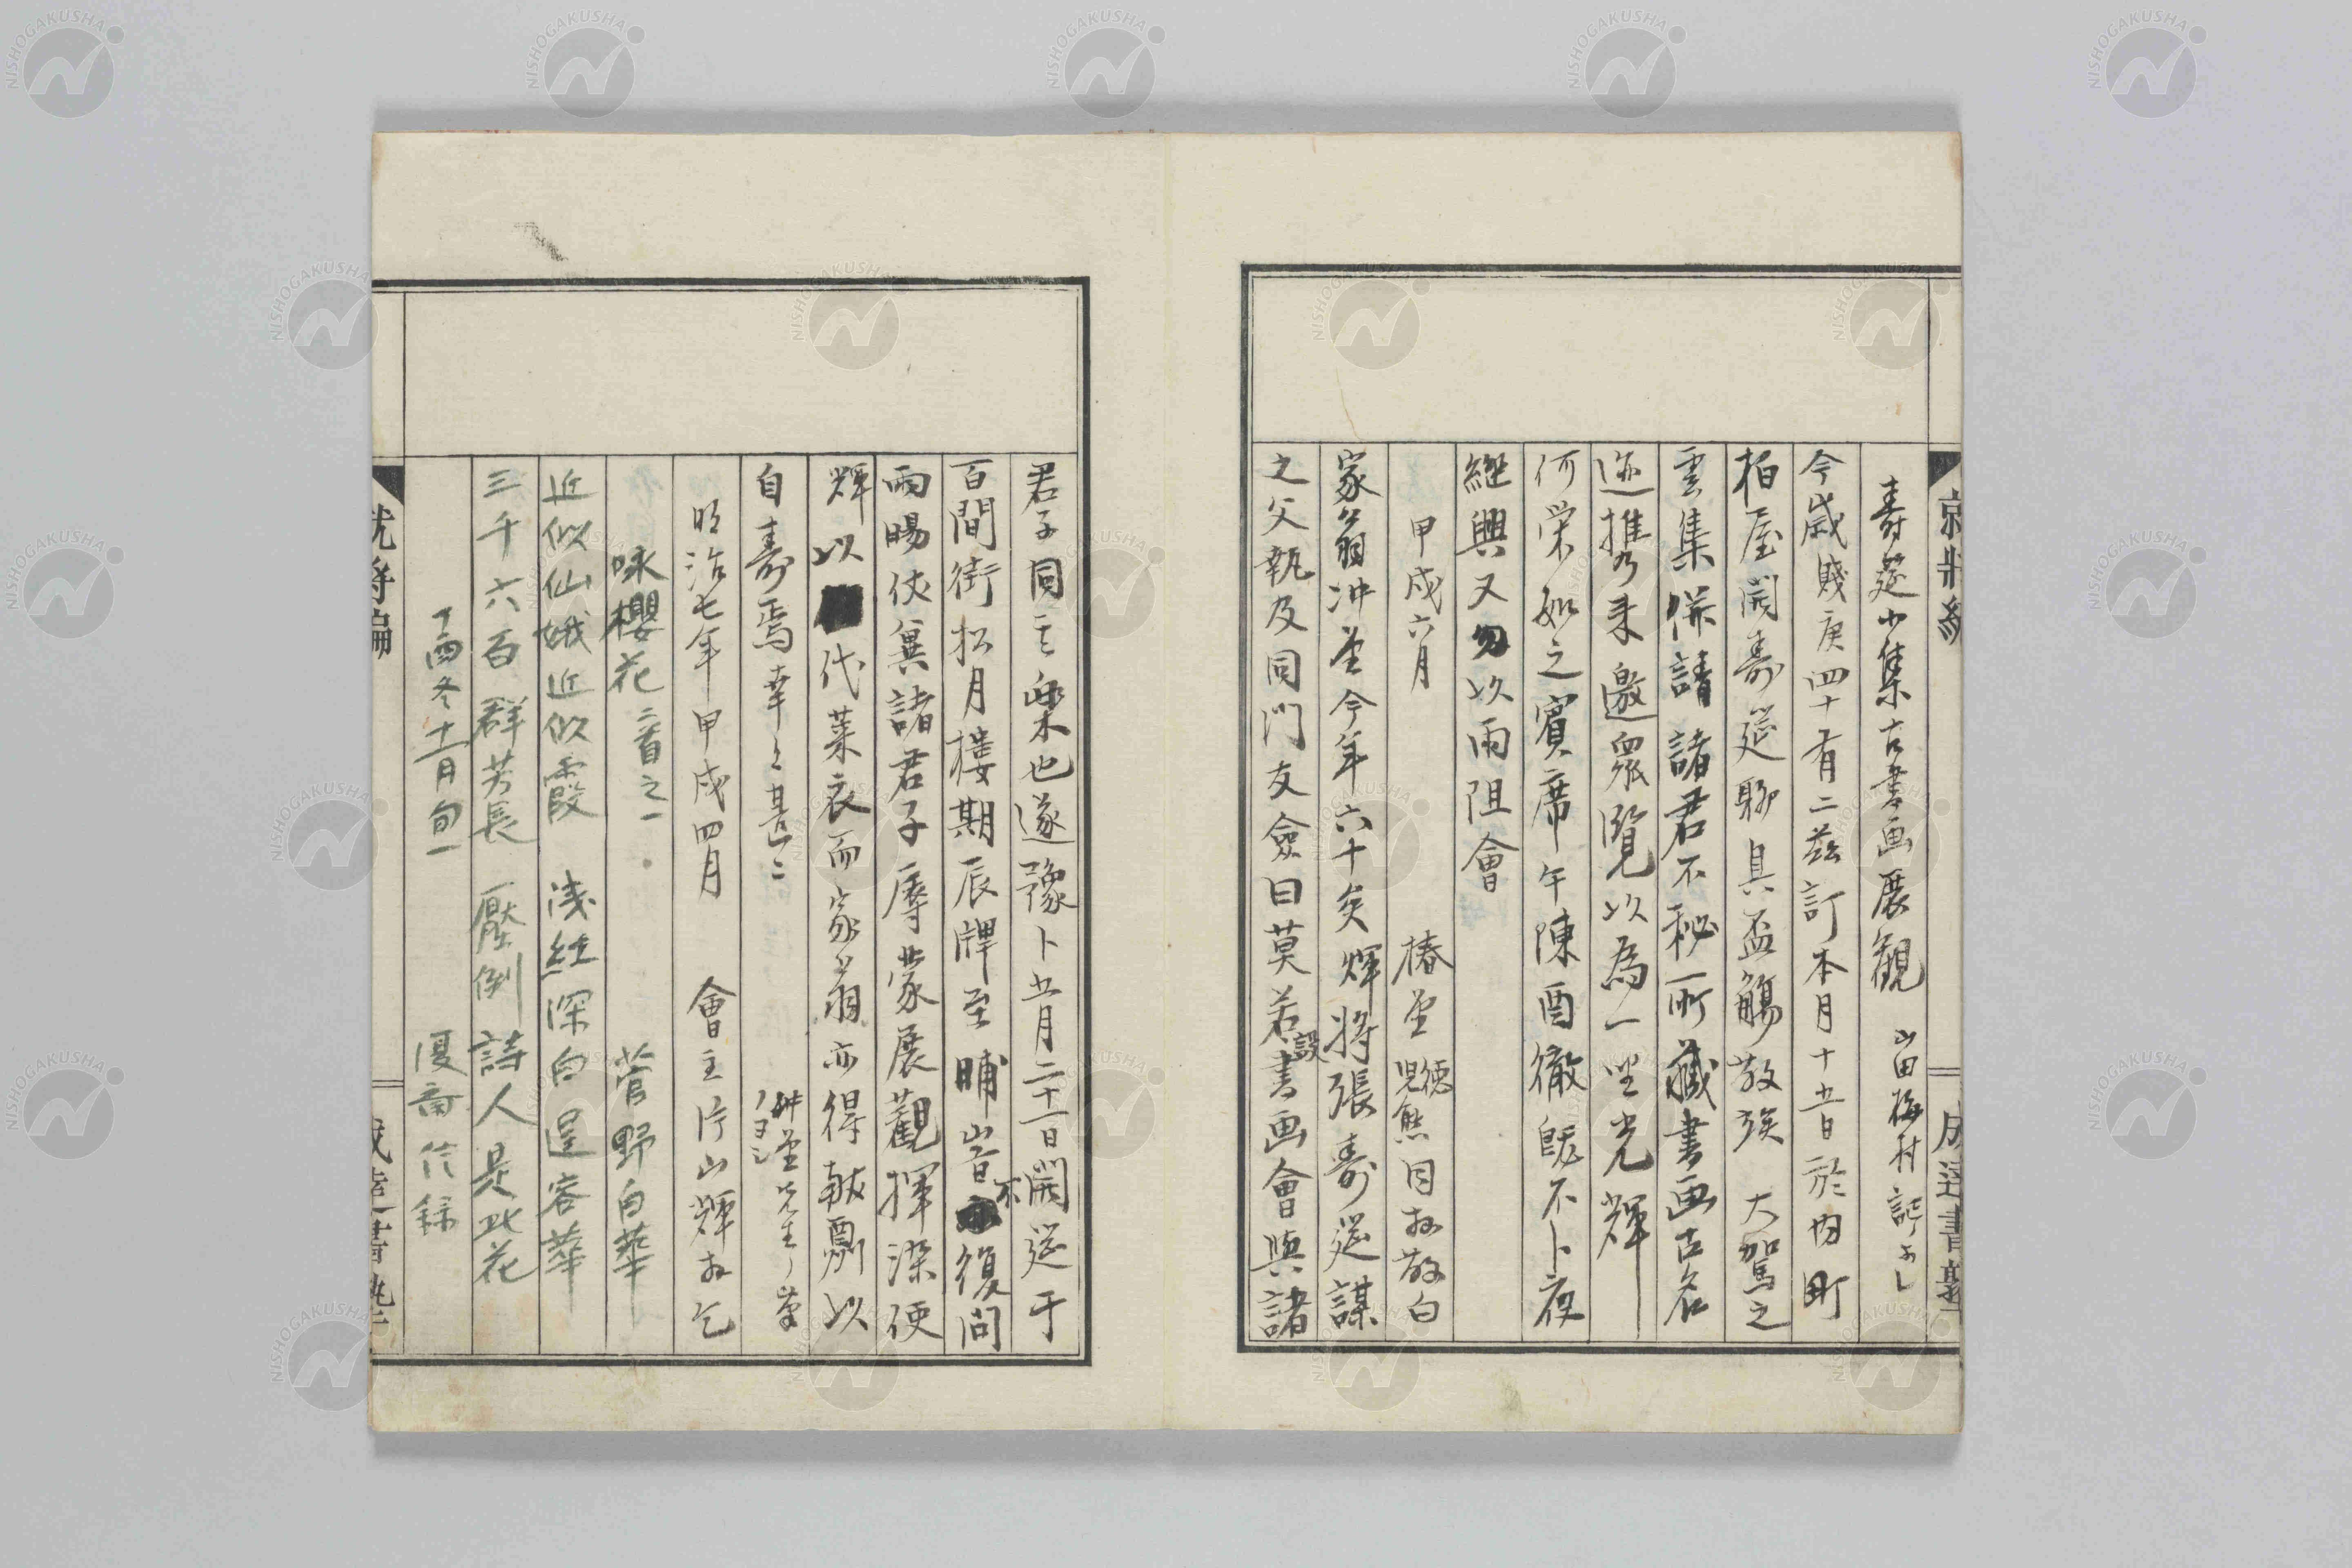 壽莚小集古書画展観 山田梅村
今歳賤庚四十有二茲訂本月十五日於内町
柏屋開壽莚聊具盃觴敬俟 大駕之
雲集併請諸君不秘所藏書画古名
迹携来邀衆覧以為一坐光輝
何栄如之賓席午陳酉徹既不卜夜
継興又勿以雨阻會
甲戌六月 椿堂 拜敬白
家翁冲堂今年六十矣輝將張壽筵謀
之父執及同門友僉曰莫若設書画會與諸
君子同其樂也遂豫卜五月二十一日開筵于
百間街松月樓期辰牌至晡出音不復問
雨暘伏冀諸君子辱蒙展觀揮染便
輝以代莱衣而家翁亦得報酬以
自壽焉幸々甚々
明治七年甲戌四月 會主片山輝拜乞
咏櫻花二首之一 菅野白華
近似仙娥近似霞 浅紅深白逞容華
三千六百群芳長 壓倒詩人是此花
丁酉冬十一月旬一
成達書塾
NISHOGAKUSHA